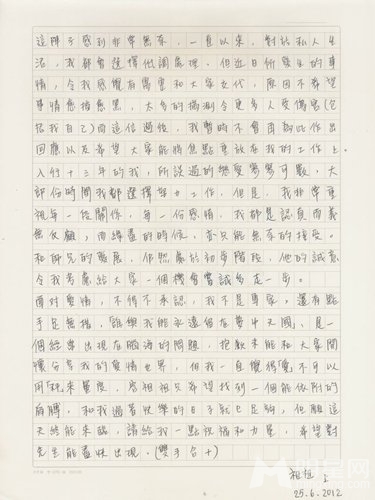 這陣子感到非常無奈，一直以來，對於私人生
活，我都會選擇低調處理。但近日所發生的事
情，令我感覺有需要和大家交代，原因不希望
事情愈描愈黑，太多的揣測令更多人受傷害(包
括我自己)而這信過後，我暫時不會再對此作出
回應以及希望大家能將焦點重放在我的工作上
入行十三年的我，所談過的戀愛寥寥可數，大
部份時間我都選擇努力工作，但是，我非常重
視每一段關係，每一份感情，我都是認真而義
無反顧，而緣盡的時候，亦只能無奈的接受。
和師兄的發展，仍然處於初步階段，他的誠意
令我考慮給大家一個機會嘗試多走一步。
面對愛情，不得不承認，我不是專家，還有點
手足無措，「誰與我能永遠在夢中天國」，是一
個經常出現在腦海的問題，抱歉未能和大家開
懷分享我的愛情世界，但我一直覺得愛不可以
用「秤」來量度，容祖祖只希望找到一個能依附的
肩膊，和我過著快樂的日子就已足夠，但願這
天終能來臨，請給我一點祝福和力量，希望對
先生能盡快出現。(雙手合十)
祖祖
25.6.2012